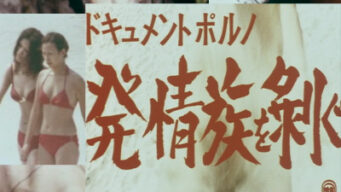 ドキュメントポルノ
発情族を剝ぐ